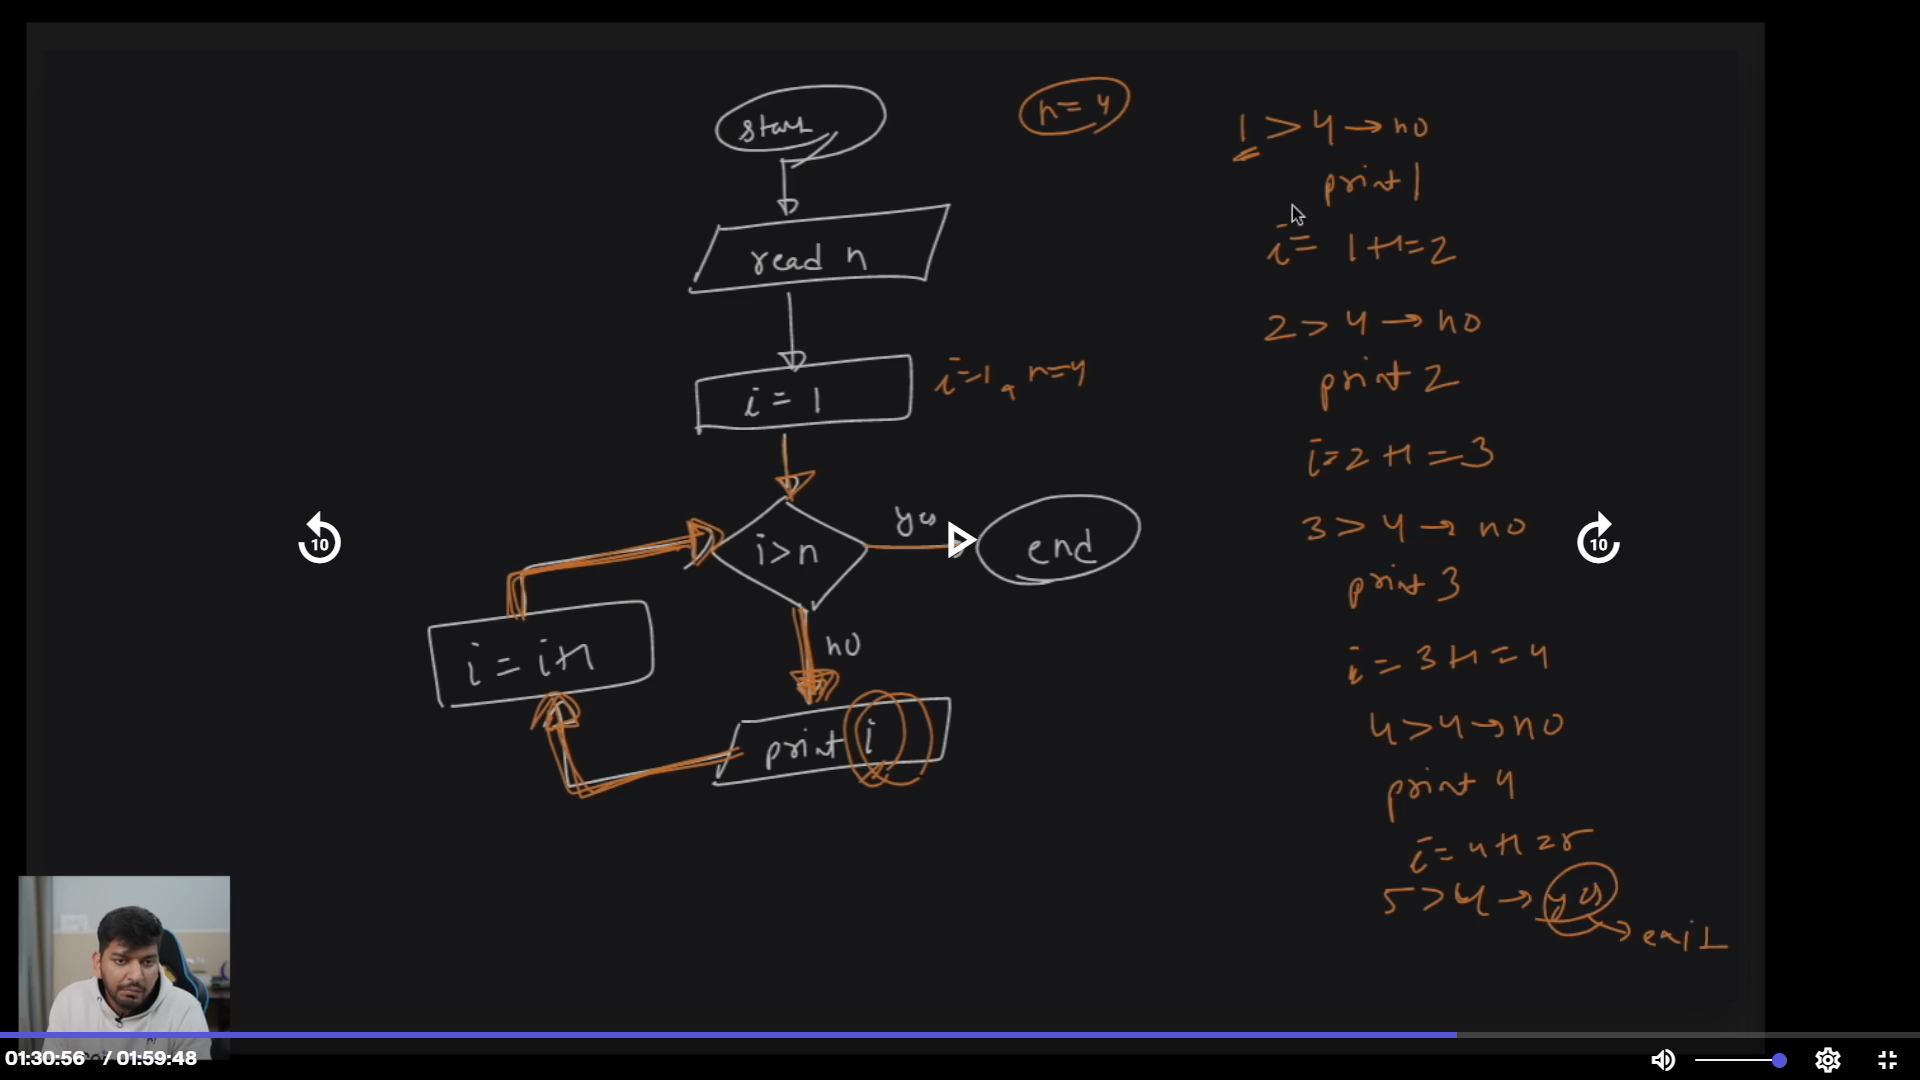 start
n=4
read n
i = 1
i=1, n=4
i>n
yes
end
no
print i
i = i+1
1 > 4 → no
print 1
i = 1+1=2
2 > 4 → no
print 2
i=2+1=3
3 > 4 → no
print 3
i = 3+1=4
4>4→no
print 4
i=4+1=5
5>4→yes
→ exit
10
10
01:30:56 / 01:59:48